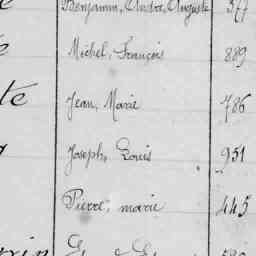 Benjamin, Andre, Auguste 577
Michel, François 889
te Jean, Marie 786
Joseph, Louis 951
Pierre, marie 445